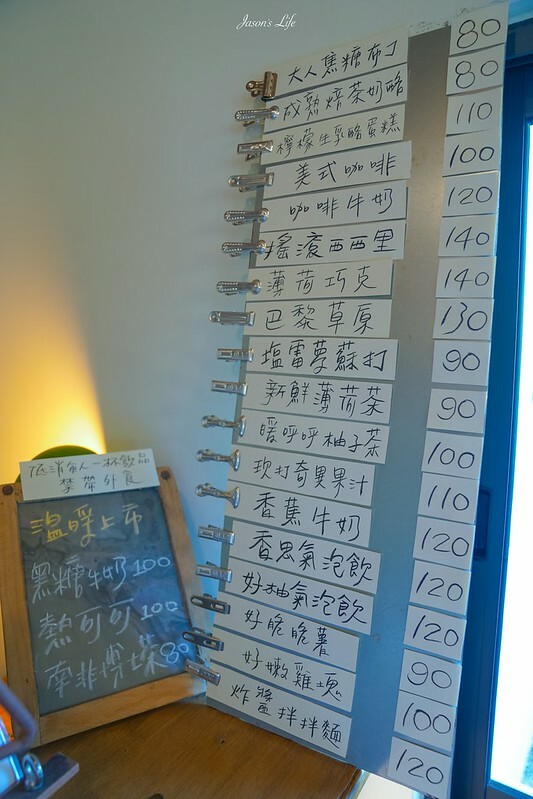 Jason's Life
大人焦糖布丁 80
成熟焙茶奶酪 80
檸檬生乳酪蛋糕 110
美式咖啡 100
咖啡牛奶 120
搖滾西西里 140
薄荷巧克 140
巴黎草原 130
塩雷夢蘇打 90
新鮮薄荷茶 90
暖呼呼柚子茶 100
打奇異果汁 110
香蕉牛奶 120
香思氣泡飲 120
好柚氣泡飲 120
好脆脆薯 90
好嫩雞塊 100
炸醬拌拌麵 120
低消每人一杯飲品
禁帶外食
溫暖上市
黑糖牛奶100
熱可可100
南非博士茶80